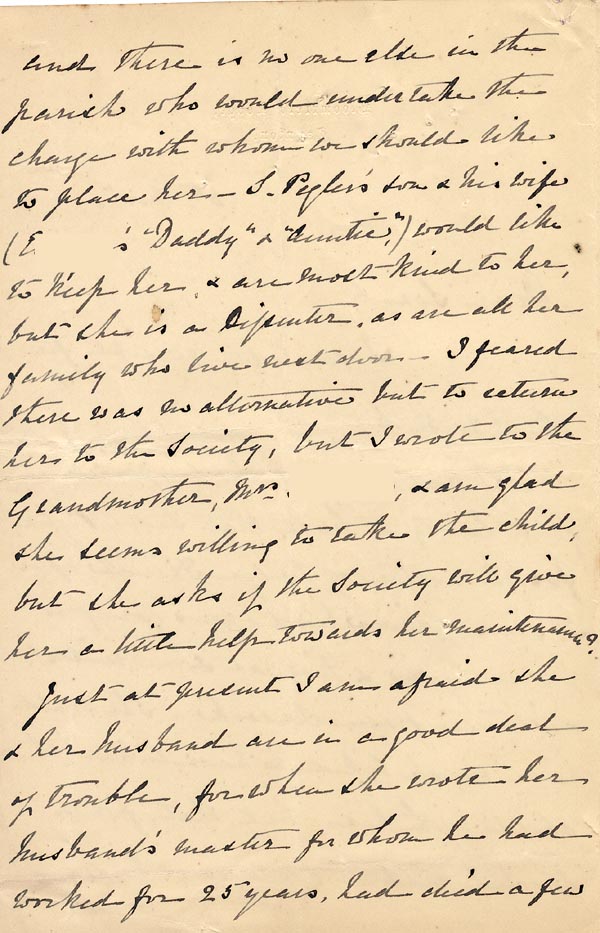 and there is no one else in the
parish who would undertake the
charge with whom we should like
to place her – S. Pegler's son & his wife
(E 's "Daddy" & "Auntie",) would like
to keep her, & are most kind to her,
but she is a Dissenter, as are all her
family who live next door – I feared
there was no alternative but to return
her to the Society, but I wrote to the
Grandmother, Mrs. , & am glad
she seems willing to take the child,
but she asks if the Society will give
her a little help towards her maintenance?
Just at present I am afraid she
& her husband are in a good deal
of trouble, for when she wrote her
husband's master for whom he had
worked for 25 years, had died a few